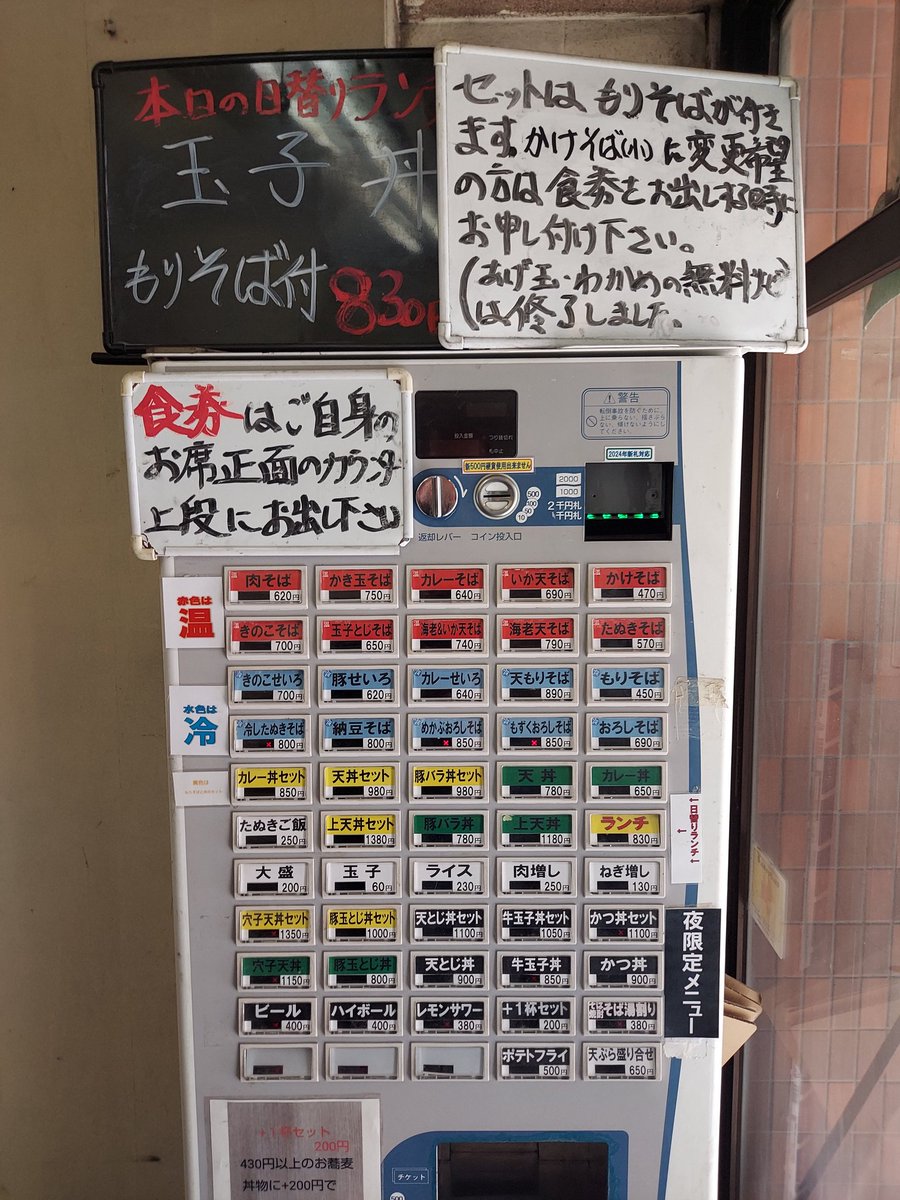 本日の日替りラン
玉子丼
もりそば付 830円
セットは もりそばが付き
ます。かけそば(小)に変更希望
の方は食券をお出しする時に
お申し付け下さい。
(あげ玉・わかめの無料サービス
は修了しました。
食券はご自身の
お席正面のカウンター
上段にお出し下さい
投入金額
つり銭切れ
札中止
警告
転倒事故を防ぐために、
上に乗らない、揺さぶら
ない、傾けないようにし
てください。
新500円硬貨使用出来ません
2024年新札対応
500
100
50
10
2000
1000
2千円札
千円札
返却レバー コイン投入口
赤色は
温
肉そば 620円
かき玉そば 750円
カレーそば 640円
いか天そば 690円
かけそば 470円
きのこそば 700円
玉子とじそば 650円
海老&いか天そば 740円
海老天そば 790円
たぬきそば 570円
水色は
冷
きのこせいろ 700円
豚せいろ 620円
カレーせいろ 640円
天もりそば 890円
もりそば 450円
冷したぬきそば 800円
納豆そば 800円
めかぶおろしそば 850円
もずくおろしそば 850円
おろしそば 690円
黄色は
カレー丼セット 850円
天丼セット 980円
豚バラ丼セット 980円
天丼 780円
カレー丼 650円
たぬきご飯 250円
上天丼セット 1380円
豚バラ丼 780円
上天丼 1180円
ランチ 830円
←日替りランチ←
大盛 200円
玉子 60円
ライス 230円
肉増し 250円
ねぎ増し 130円
穴子天丼セット 1350円
豚玉とじ丼セット 1000円
天とじ丼セット 1100円
牛玉子丼セット 1050円
かつ丼セット 1100円
夜限定メニュー
穴子天丼 1150円
豚玉とじ丼 800円
天とじ丼 900円
牛玉子丼 850円
かつ丼 900円
ビール 400円
ハイボール 400円
レモンサワー 380円
+1杯セット 200円
そば湯割り 380円
ポテトフライ 500円
天ぷら盛り合せ 650円
+1杯セット
200円
430円以上のお蕎麦
丼物に+200円で
チケット